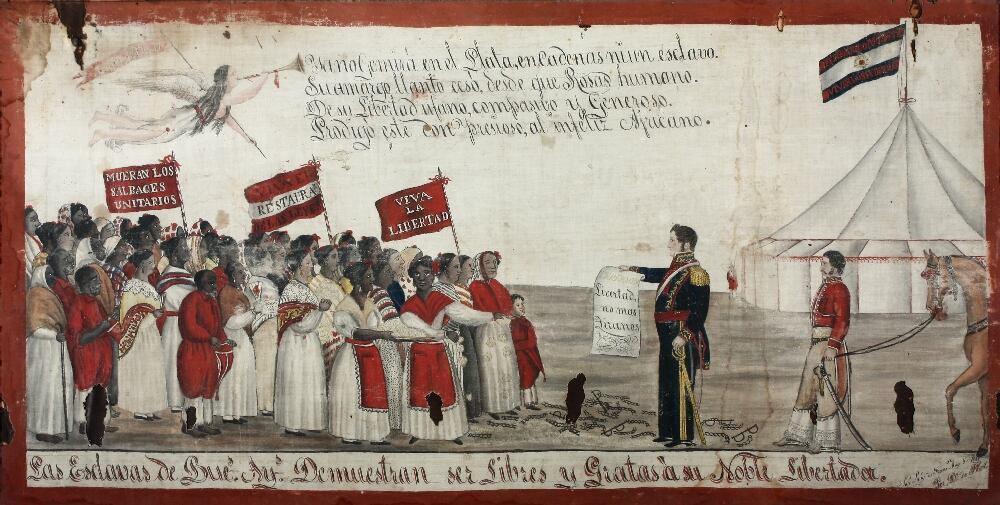 Ya no Gemirá en el Plata, en Cadenas ni un esclavo.
Su amargo llanto cesó, desde que Rosas humano.
De su Libertad ufano, compasivo y Generoso.
Prodigó este don precioso, al infeliz Africano.
MUERAN LOS
SALBAGES
UNITARIOS
VIVA EL
RESTAURA
VIVA
LA
LIBERTAD
Livertad,
no mas
Tiranos
Las Esclavas de Bue.s Ay.s Demuestran ser Libres y Gratas à su Noble Libertador.